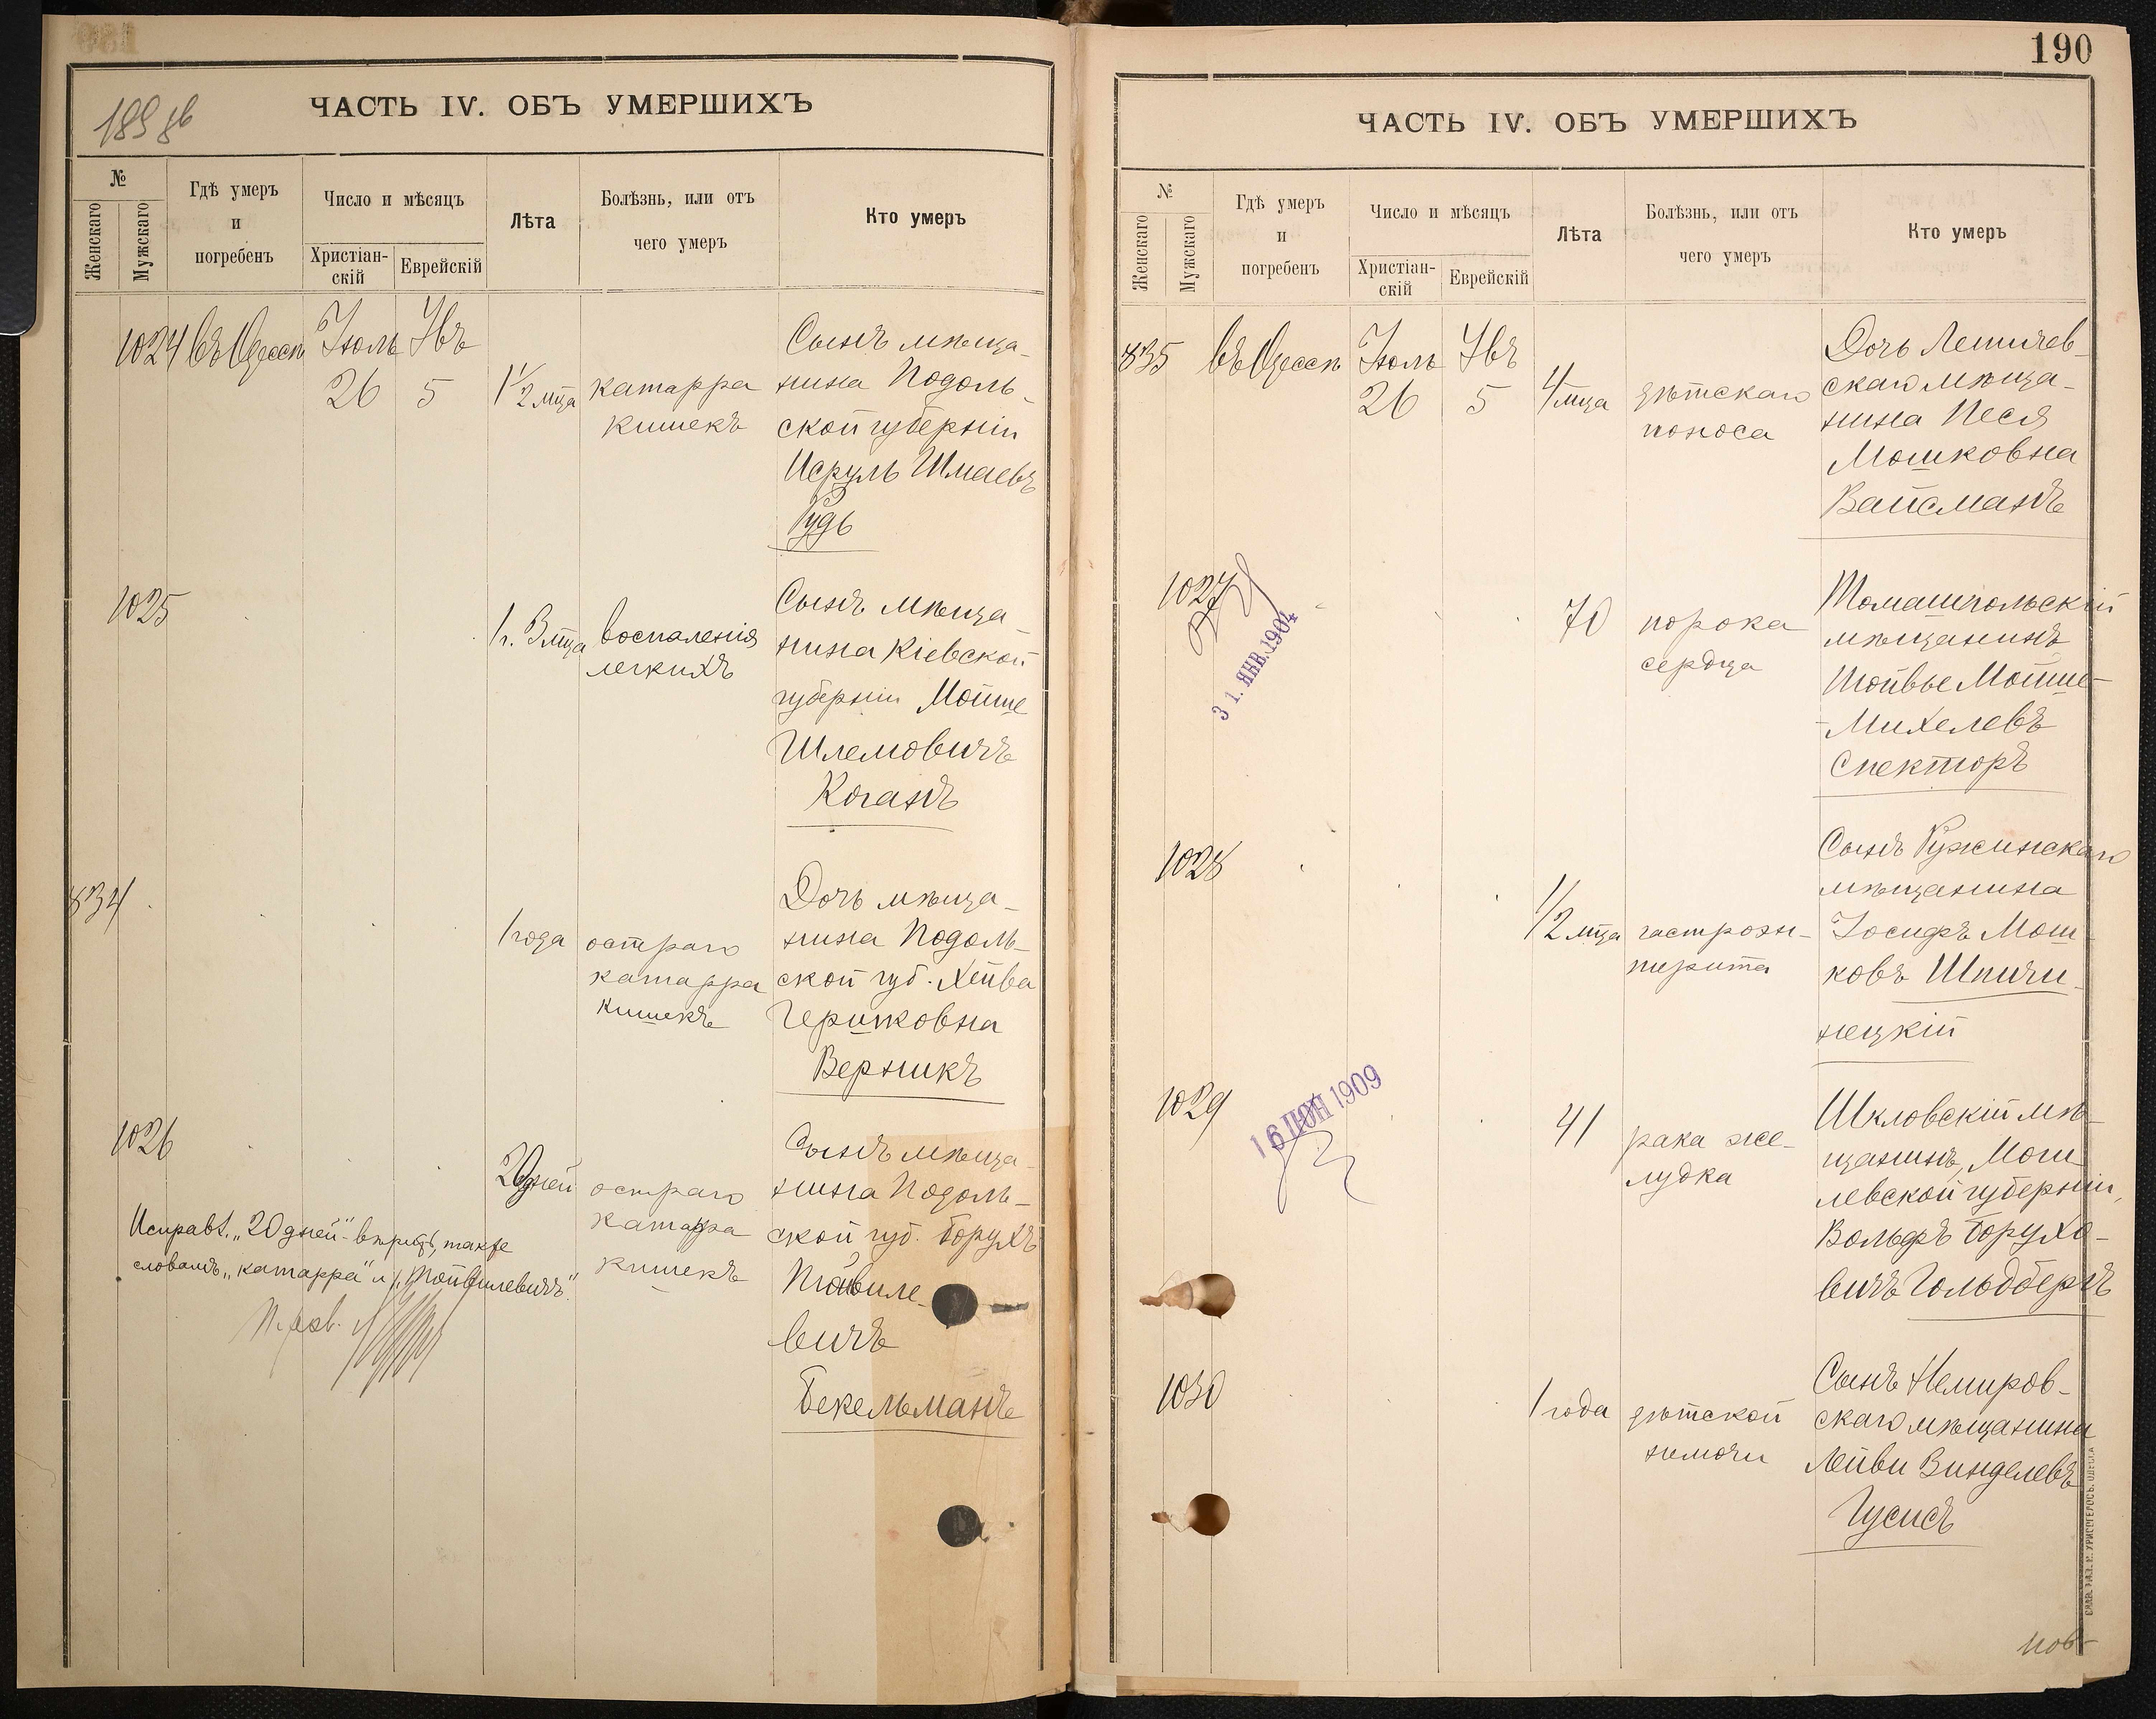 189 об
ЧАСТЬ IV. ОБЪ УМЕРШИХЪ
№
Женскаго
Мужскаго
Гдѣ умеръ
и
погребенъ
Число и мѣсяцъ
Христіан-
скій
Еврейскій
Лѣта
Болѣзнь, или отъ
чего умеръ
Кто умеръ
1024 въ Одессѣ Іюль Увъ
26 5 1 1/2 мца катарра
кишекъ
Сынъ мѣща-
нина Подоль-
ской губерніи
Исруль Шмаевъ
Рудь
1025
1 г. 3 мца воспаленія
легкихъ
Сынъ мѣща-
нина Кіевской
губерніи Мойше
Шлемовичъ
Коганъ
834
1 года остраго
катарра
кишекъ
Дочь мѣща-
нина Подоль-
ской губ. Хейва
Гершковна
Верникъ
1026
20 дней остраго
катарра
кишекъ
Сынъ мѣща-
нина Подоль-
ской губ. Борухъ
Тойвиле-
вичъ
Бекельманъ
Исправл. „20 дней" вѣрить, также
словамъ „катарра" и „Тойвилевичъ".
190
ЧАСТЬ IV. ОБЪ УМЕРШИХЪ
№
Женскаго
Мужскаго
Гдѣ умеръ
и
погребенъ
Число и мѣсяцъ
Христіан-
скій
Еврейскій
Лѣта
Болѣзнь, или отъ
чего умеръ
Кто умеръ
835 въ Одессѣ Іюль Увъ
26 5 4 мца дѣтскаго
поноса
Дочь Летичев-
скаго мѣща-
нина Песя
Мошковна
Вайсманъ
1027
31. ЯНВ. 1904
70 порока
сердца
Томашпольскій
мѣщанинъ
Тойвье Мойше-
-Михелевъ
Спекторъ
1028
1/2 мца гастроэн-
терита
Сынъ Ружинскаго
мѣщанина
Іосифъ Мош-
ковъ Шпичи-
нецкій
1029
16 ІЮН 1909
41 рака же-
лудка
Шкловскій мѣ-
щанинъ, Моги-
левской губерніи,
Вольфъ Борухо-
вичъ Гольдбергъ
1030
1 года дѣтской
немочи
Сынъ Немиров-
скаго мѣщанина
Лейви Винделевъ
Гусисъ